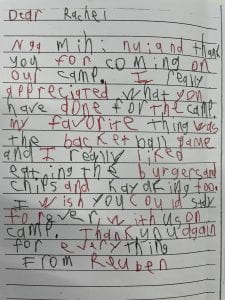 Dear Rachel
Nga mihi nui and thank
you for coming on
our camp. I really
appreciated what you
have done for the camp.
my favorite thing was
the basket ball game
and I really liked
eating the burgers and
chips and kayaking too.
I wish you could stay
forever with us on
camp. Thank you again
for everything
From Reuben